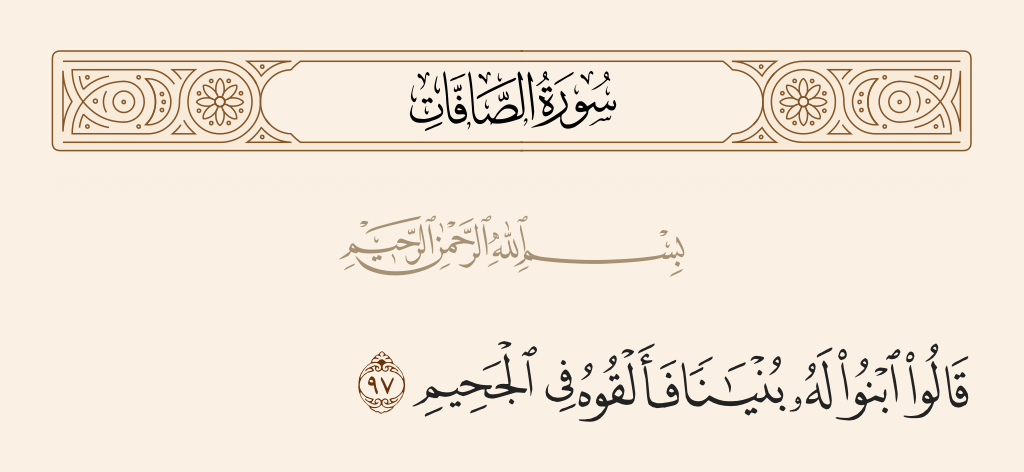 سُورَةُ الصَّافَّاتِ
بِسْمِ ٱللَّهِ ٱلرَّحْمَٰنِ ٱلرَّحِيمِ
قَالُوا۟ ٱبْنُوا۟ لَهُۥ بُنْيَـٰنًا فَأَلْقُوهُ فِى ٱلْجَحِيمِ ٩٧